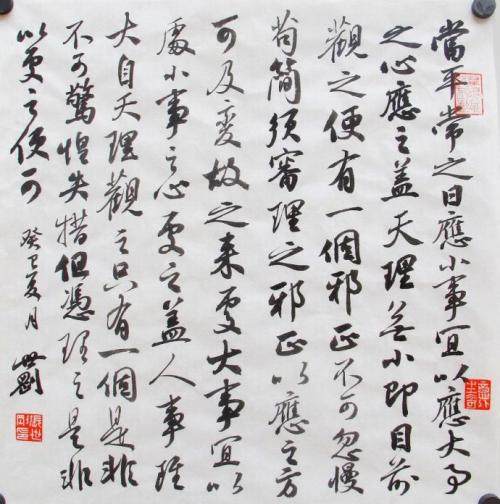 當平常之日應小事宜以應大事
之心應之蓋天理無小即目前
觀之便有一個邪正不可忽慢
苟簡須審理之邪正以應之方
可及變故之來處大事宜以
處小事之心處之蓋人事雖
大自天理觀之只有一個是非
不可驚惶失措但憑理之是非
以處之便可
癸巳夏月